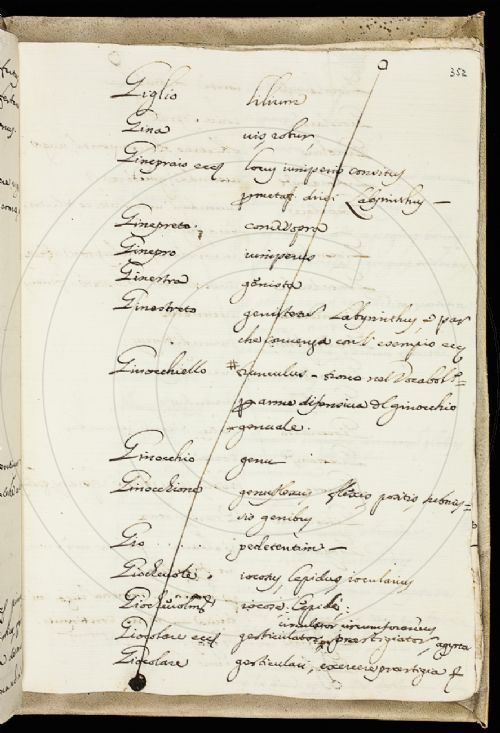 352
Giglio lilium
Gina vis robur
Ginepraio ecc locus iuniperis consitus
p metaf. dici Labyrinthus —
Ginepreto. come sopra
Ginepro iuniperus
Ginestra genista
Ginestreto Labyrinthus, e par
che convenga con l'esempio ecc
Ginocchiello # nel Vocabol.=
p arme difensiva del ginocchio
genuale.
Ginocchio genu
Ginocchione flexis, positis
genibus
Gio pedetentim —
Giochevole. iocosus, lepidus, iocularius
iocose. Lepide.
circulator
Giocolare ecc gesticulator, praestigiator, agyrta
Giocolare gesticulari, exercere praestigia